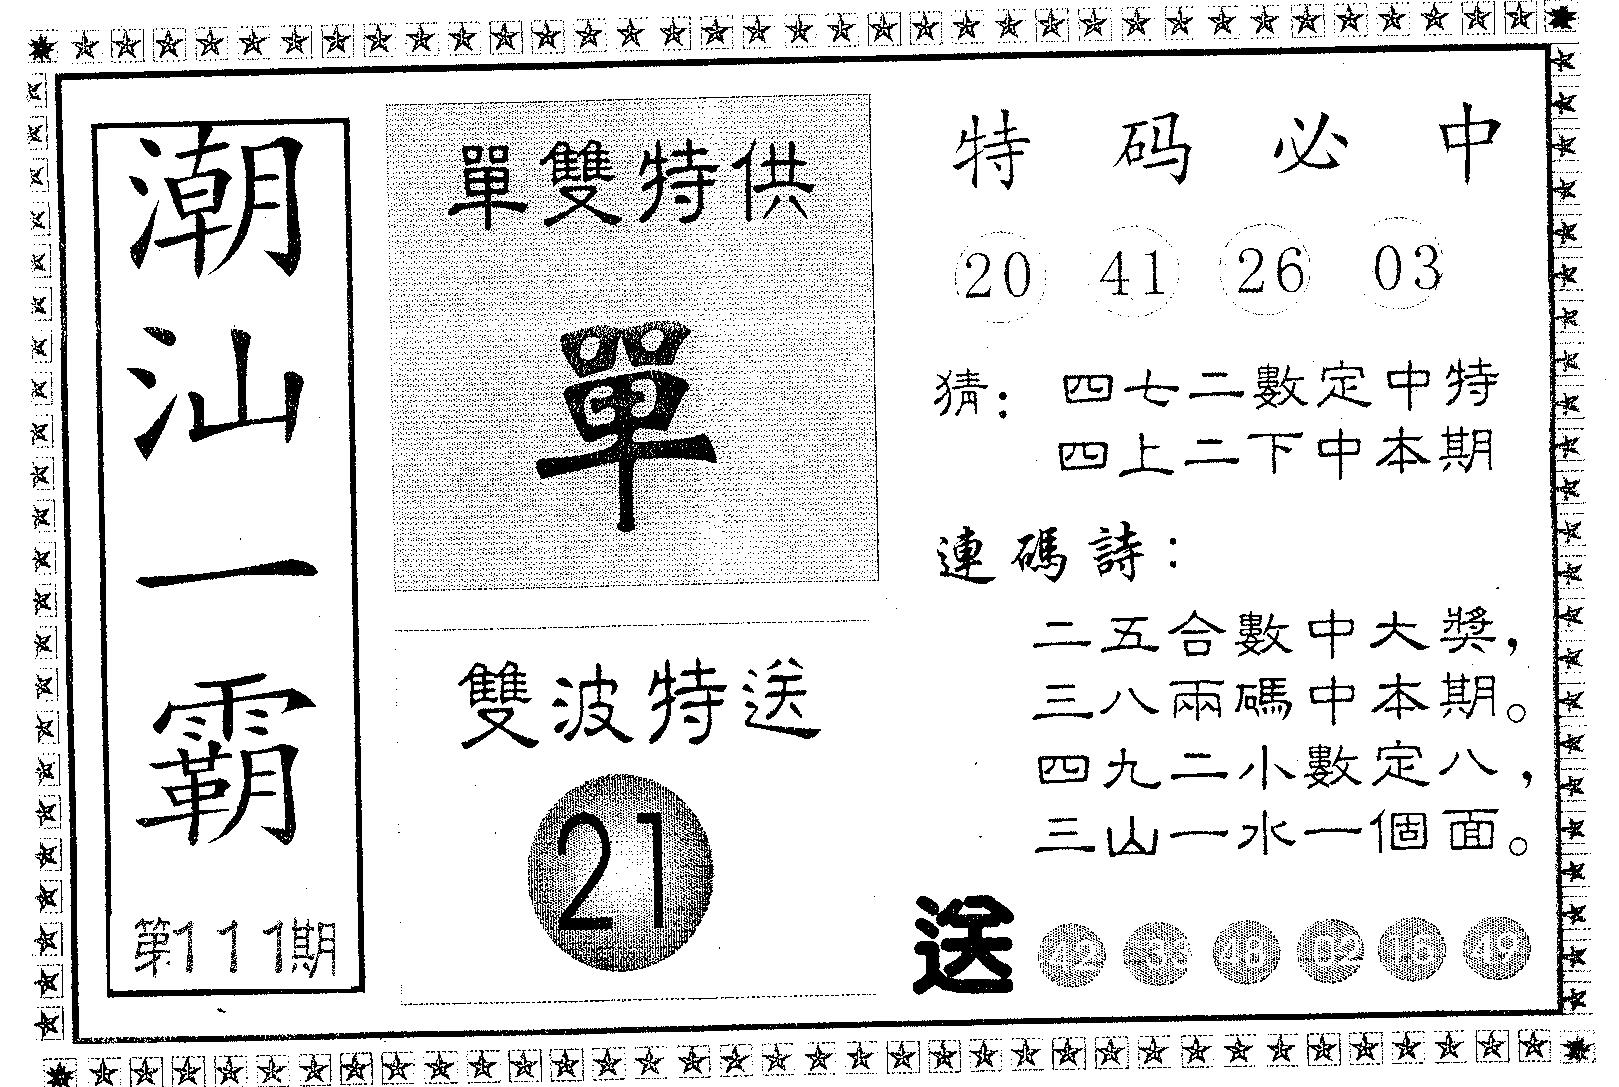 潮汕一霸
第111期
單雙特供
單
雙波特送
21
特码必中
20 41 26 03
猜：四七二數定中特
四上二下中本期
連碼詩：
二五合數中大獎，
三八兩碼中本期。
四九二小數定八，
三山一水一個面。
送 42 48 02 16 49